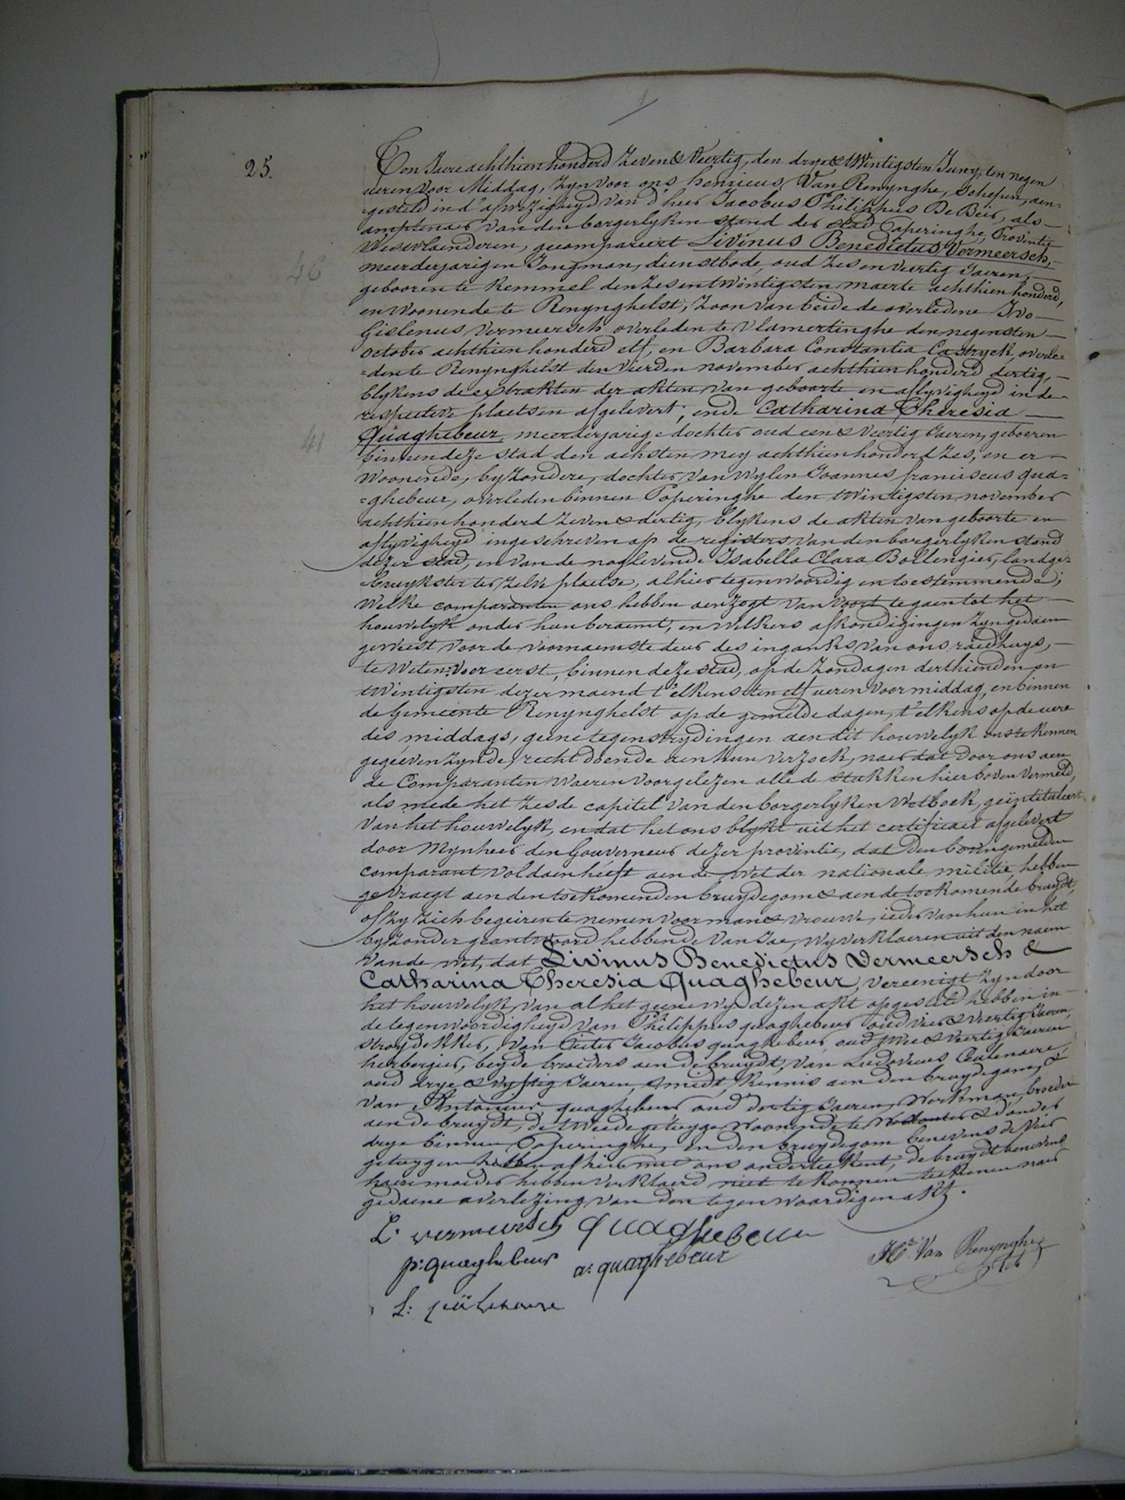 25.
Ten Jaere achthien honderd Zeven & Veertig, den drye & Twintigsten Juny, ten negen
ueren voor Middag, Zyn voor ons henricus Van Renynghe, Schepen, aen-
gesteld in d'afwezigheyd van d'heer Jacobus Philippus De Beir, als
amptenaer van den borgerlyken stand der stad Poperinghe, Provintie
Westvlaenderen, gecompareert Livinus Benedictus Vermeersch,
meerderjarigen Jongman, dienstbode, oud Zes en veertig Jaeren,
gebooren te Kemmel den Zes en twintigsten maerte achthien honderd,
en Woonende te Renynghelst, Zoon van beide de overledene Ivo
Gislenus Vermeersch overleden te Vlamertinghe den negensten
October achthien honderd elf, en Barbara Constantia Castryck, overle-
=den te Renynghelst den vierden november achthien honderd dertig,
blykens de extrakten der akten van geboorte en aflyvigheyd in de
respective plaetsen afgelevert, ende Catharina Theresia
Quaghebeur, meerderjarige dochter oud een & Veertig Jaeren, gebooren
binnen deze stad den achsten mey achthien honderd Zes, en er
Woonende, byzondere, dochter van Wylen Joannes franciscus qua-
=ghebeur, overleden binnen Poperinghe den twintigsten november
achthien honderd Zeven & dertig, blykens de akten van geboorte en
aflyvigheyd ingeschreven op de registers van den borgerlyken stand
dezer stad, en van de noglevende Isabella Clara Bollengier, landge-
bruykster ter zelve plaetse, alhier tegenwoordig en toestemmende;
Welke comparanten ons hebben aenzogt van voort te gaen tot het
houwelyk onder hun beraemt, en welkers afkondigingen zyn gedaen
geweest voor de voornaemste deur des inganks van ons raedhuys,
te Weten: Voor eerst, binnen deze stad, op de zondagen derthienden en
twintigsten dezer maend t'elkens ten elf ueren voormiddag, en binnen
de Gemeente Renynghelst op de gemelde dagen, t'elkens op de uere
des middags, geene tegenstrydingen aen dit houwelyk ons te kennen
gegeeven zynde, recht doende aen hun verzoek, naer dat door ons aen
de Comparanten Waeren voorgelezen alle de stukken hier boven vermeld,
als mede het zesde capitel van den borgerlyken Wetboek, geïntituleert
Van het houwelyk, en dat het ons blykt uit het certificaet afgelevert
door Mynheer den Gouverneur dezer provintie, dat den bovengemelden
comparant voldaen heeft aen de wet der nationale militie, hebben
gevraegt aen den toekomenden bruydegom & aen de toekomende bruydt,
of zy zich begeiren te nemen voor man & vrouwe, ieder van hun in het
byzonder geantwoord hebbende van Jae, wy verklaeren uit den naem
van de wet, dat Livinus Benedictus Vermeersch &
Catharina Theresia Quaghebeur, vereenigt zyn door
het houwelyk, van al het geene wy dezen akt opgesteld hebben in
de tegenwoordigheyd van Philippus quaghebeur oud vier & veertig Jaeren,
stroydekker, van Pieter Jacobus quaghebeur oud twee & veertig Jaeren
herbergier, beyde broeders aen de bruydt, van Ludovicus
oud drye & vyftig Jaeren, smidt, kennis aen den bruydegom, &
van Antonius quaghebeur oud dertig Jaeren, Workman, broeder
aen de bruydt, de tweede getuyge woonende te & d'ander
drye binnen Poperinghe, en den bruydegom benevens de vier
getuygen hebben alhier met ons onderteekent, de bruydt benevens
haere moeder hebben verklaerd niet te konnen teekenen naer
gedaene overlezing van den tegenwoordigen akt.
L. vermeersch quaghebeur
p: quaghebeur a: quaghebeur
Hri Van Renynghe
L: